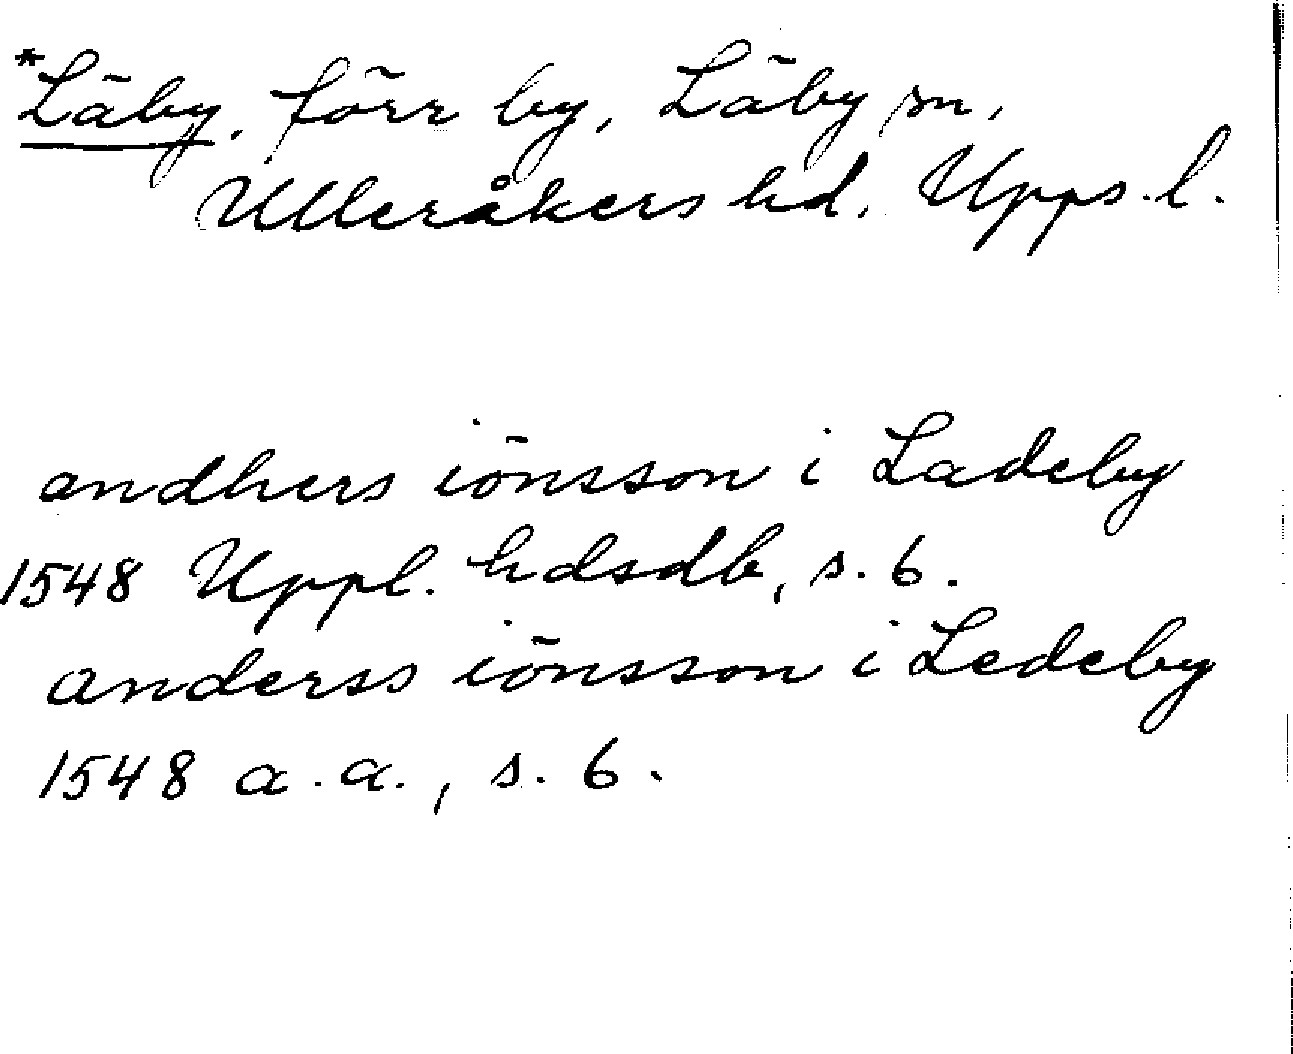 *Läby, förr by, Läby sn,
Ulleråkers hd. Upps. l.
andhers iönsson i Ladeby
1548 Uppl. hdsdb, s. 6.
anderss iönsson i Ledeby
1548 a. a., s. 6.